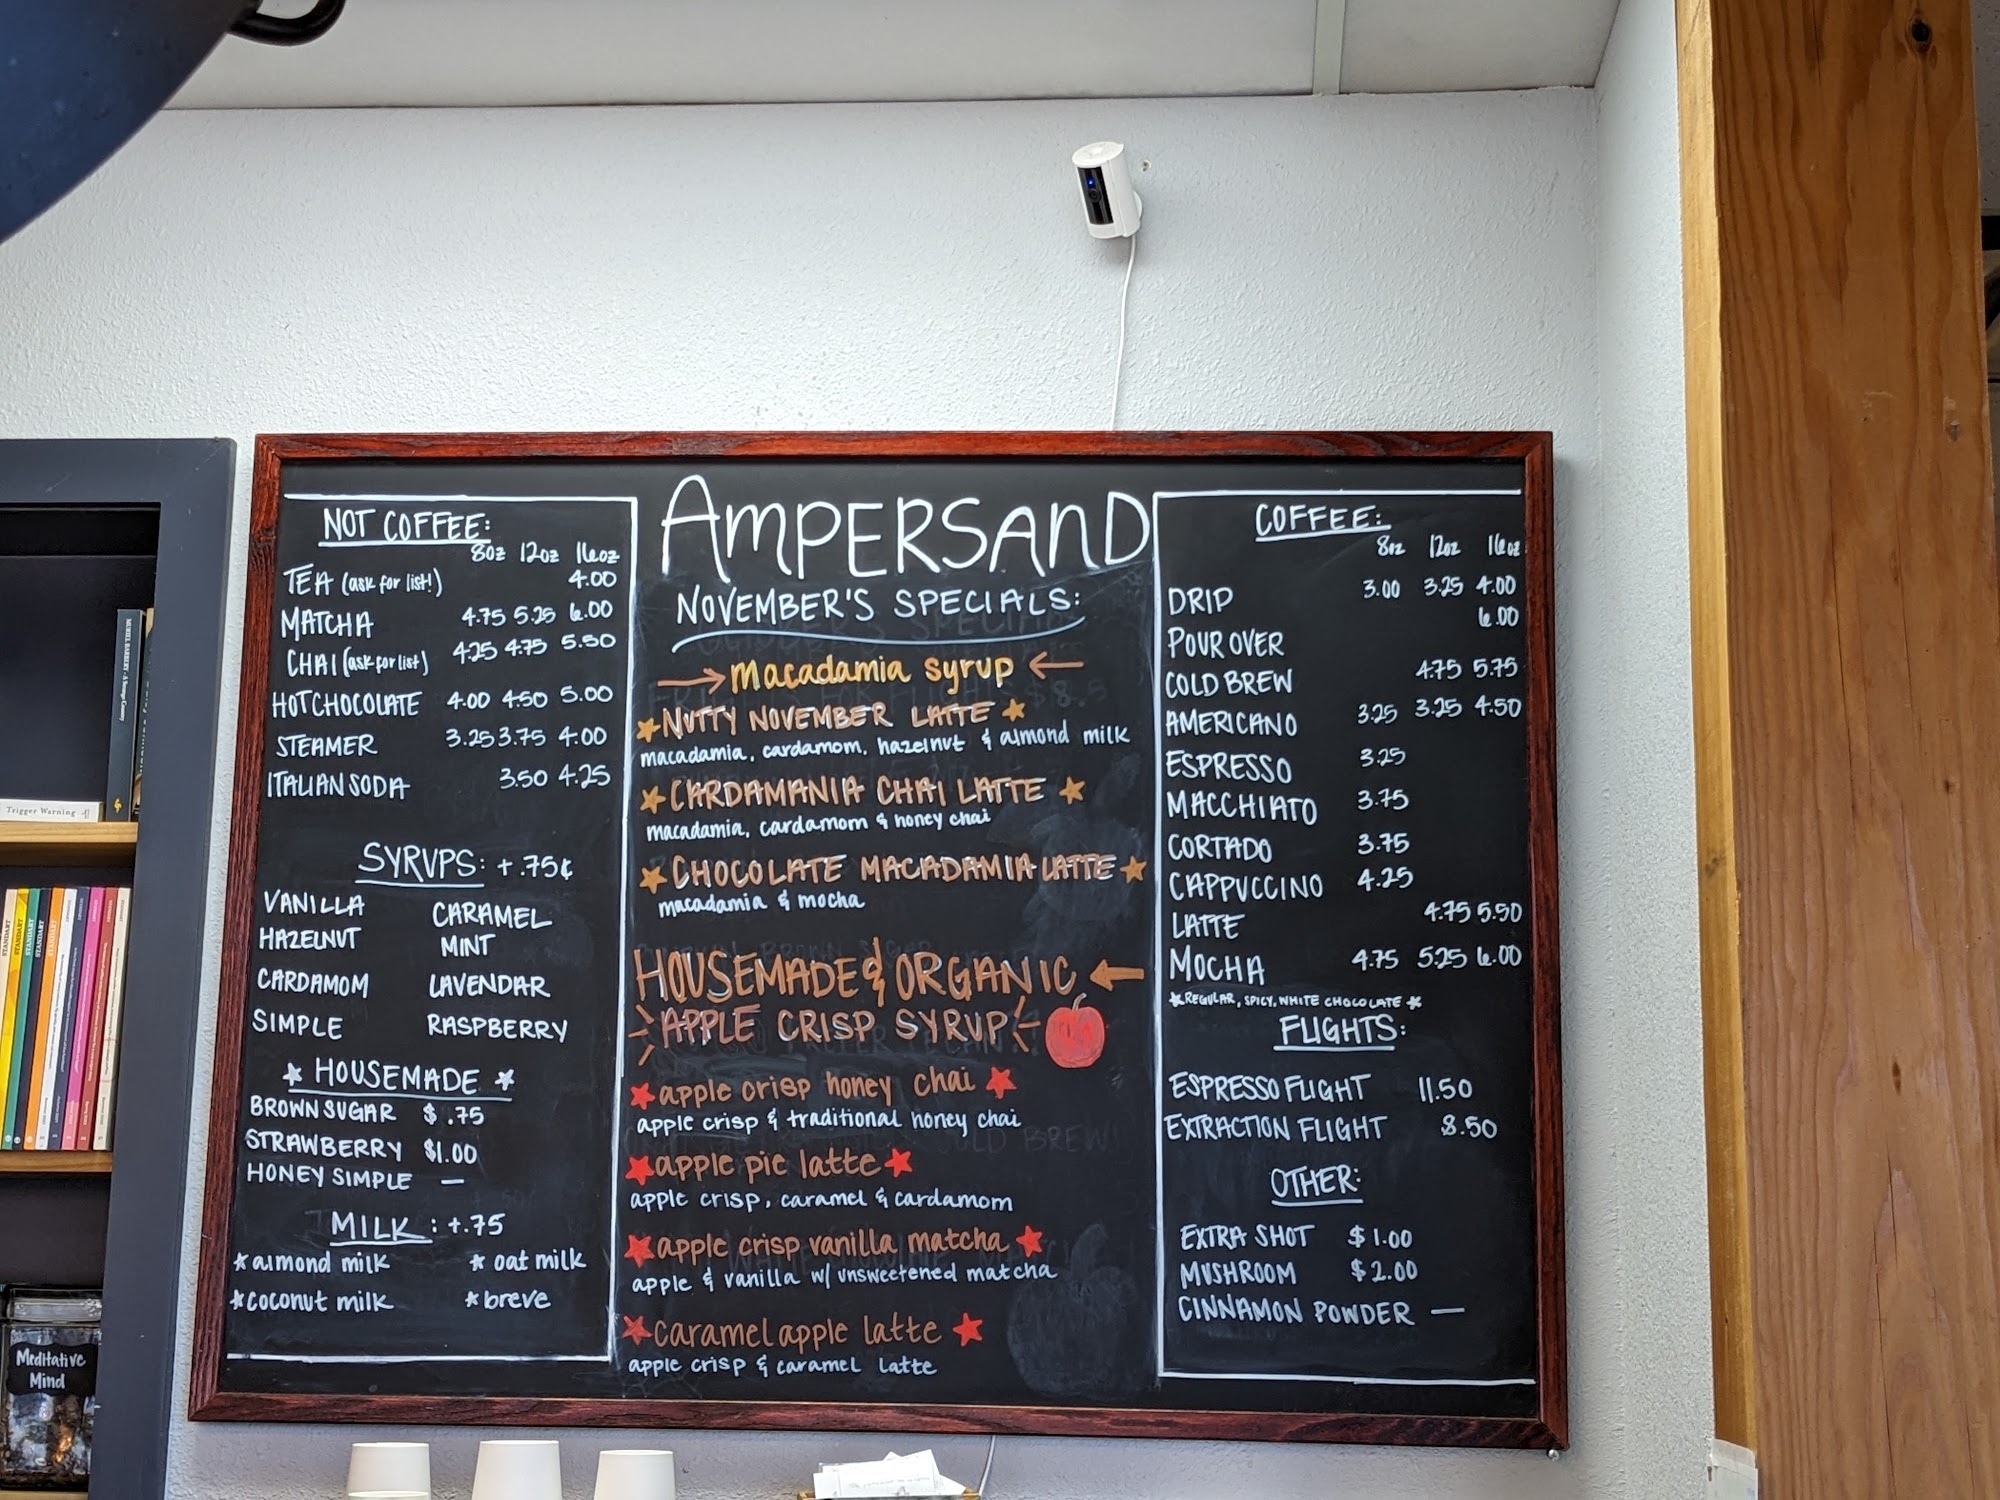 NOT COFFEE:
8oz 12oz 16oz
TEA (ask for list!) 4.00
MATCHA 4.75 5.25 6.00
CHAI (ask for list) 4.25 4.75 5.50
HOT CHOCOLATE 4.00 4.50 5.00
STEAMER 3.25 3.75 4.00
ITALIAN SODA 3.50 4.25
SYRUPS: +.75¢
VANILLA CARAMEL
HAZELNUT MINT
CARDAMOM LAVENDAR
SIMPLE RASPBERRY
HOUSEMADE
BROWN SUGAR $.75
STRAWBERRY $1.00
HONEY SIMPLE —
MILK: +.75
*almond milk *oat milk
*coconut milk *breve
AMPERSAND
NOVEMBER'S SPECIALS:
→ Macadamia syrup ←
★NUTTY NOVEMBER LATTE★
macadamia, cardamom, hazelnut & almond milk
★CARDAMANIA CHAI LATTE★
macadamia, cardamom & honey chai
★CHOCOLATE MACADAMIA LATTE★
macadamia & mocha
HOUSEMADE & ORGANIC ←
APPLE CRISP SYRUP
★apple crisp honey chai★
apple crisp & traditional honey chai
★apple pie latte★
apple crisp, caramel & cardamom
★apple crisp vanilla matcha★
apple & vanilla w/ unsweetened matcha
★caramel apple latte★
apple crisp & caramel latte
COFFEE:
8oz 12oz 16oz
DRIP 3.00 3.25 4.00
POUR OVER 6.00
COLD BREW 4.75 5.75
AMERICANO 3.25 3.25 4.50
ESPRESSO 3.25
MACCHIATO 3.75
CORTADO 3.75
CAPPUCCINO 4.25
LATTE 4.75 5.50
MOCHA 4.75 5.25 6.00
*REGULAR, SPICY, WHITE CHOCOLATE*
FLIGHTS:
ESPRESSO FLIGHT 11.50
EXTRACTION FLIGHT 8.50
OTHER:
EXTRA SHOT $1.00
MUSHROOM $2.00
CINNAMON POWDER —
Trigger Warning
STANDART
STANDART
STANDART
STANDART
Meditative
Mind